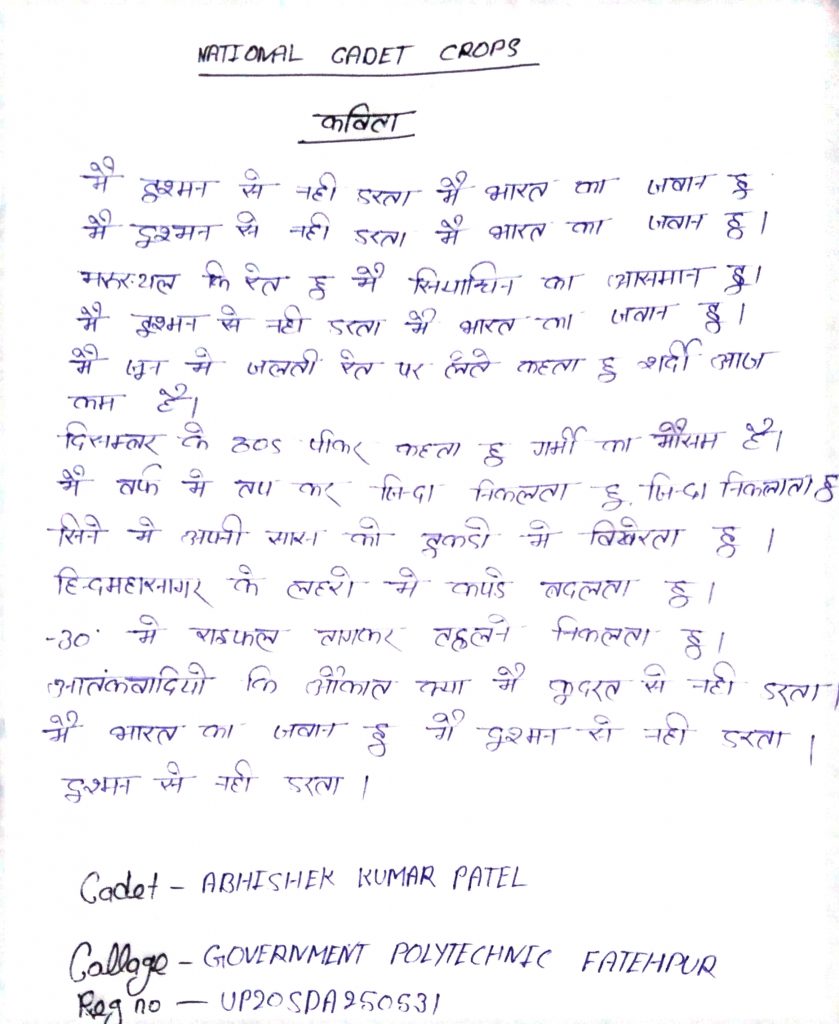 NATIONAL CADET CROPS
कविता
मै दुश्मन से नही डरता मै भारत का जवान हु
मै दुश्मन से नही डरता मै भारत का जवान हु।
मरुस्थल कि रेत हु मै सियाचिन का आसमान हु।
मै दुश्मन से नही डरता मै भारत का जवान हु।
मै जून मे जलती रेत पर कहता हु शर्दी आज
कम है।
दिसम्बर के ठण्ड पीकर कहता हु गर्मी का मौसम है।
मै बर्फ मे तप कर जिन्दा निकलता हु जिन्दा निकलाता हु
सिने मे अपनी सास को टुकडो मे बिखेरता हु ।
हिन्दमहासागर के लहरो मे कपडे बदलता हु।
-30° मे राइफल टहलने निकलता हु।
आतंकवादियो कि औकात क्या मै कुदरत से नही डरता।
मै भारत का जवान हु मै दुश्मन से नही डरता।
दुश्मन से नही डरता।
Cadet - ABHISHEK KUMAR PATEL
Collage - GOVERNMENT POLYTECHNIC FATEHPUR
Reg no - UP20SDA250531